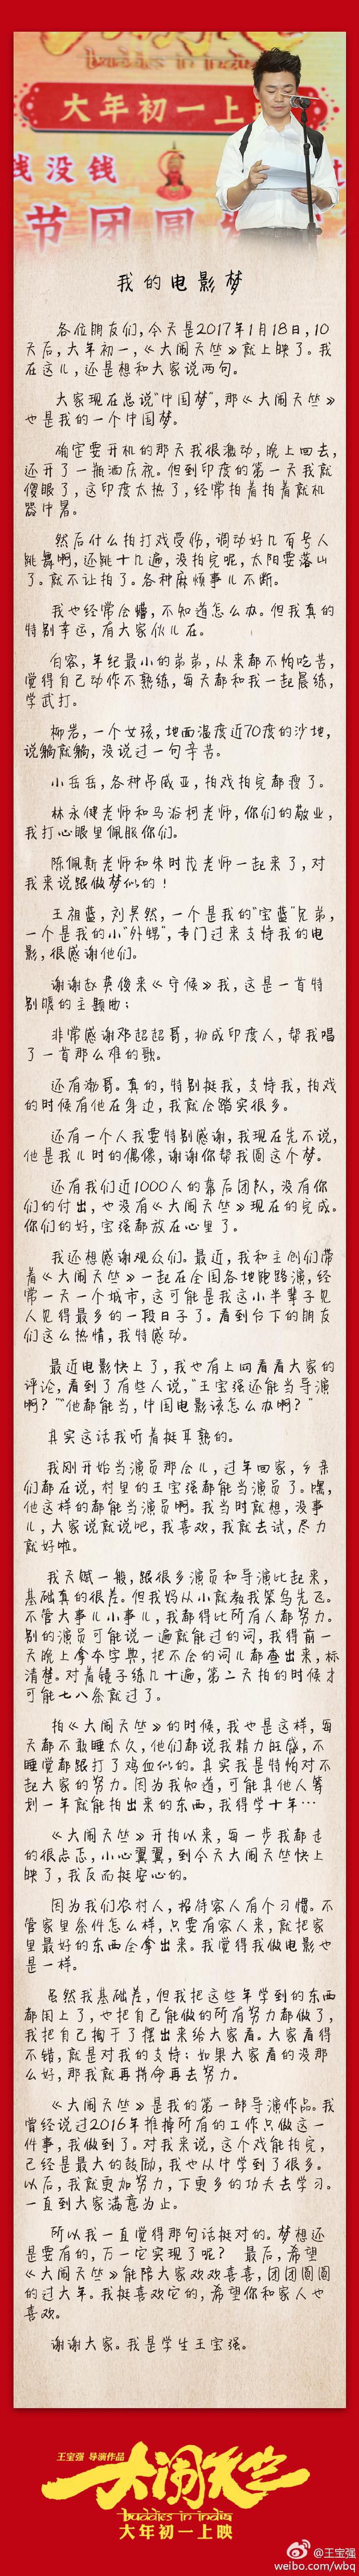 buddies in india
大年初一上
钱没钱
节团圆
我的电影梦
各位朋友们,今天是2017年1月18日,10
天后,大年初一,《大闹天竺》就上映了。我
在这儿,还是想和大家说两句。
大家现在总说“中国梦”,那《大闹天竺》
也是我的一个中国梦。
确定要开机的那天我很激动,晚上回去,
还开了一瓶酒庆祝。但到印度的第一天我就
傻眼了,这印度太热了,经常拍着拍着就机
器中暑。
然后什么拍打戏受伤,调动好几百号人
跳舞啊,还跳十几遍,没拍完呢,太阳要落山
了。就不让拍了。各种麻烦事儿不断。
我也经常会懵,不知道怎么办。但我真的
特别幸运,有大家伙儿在。
白客,年纪最小的弟弟,从来都不怕吃苦,
觉得自己动作不熟练,每天都和我一起晨练,
学武打。
柳岩,一个女孩,地面温度近70度的沙地,
说躺就躺,没说过一句辛苦。
小岳岳,各种吊威亚,拍戏拍完都瘦了。
林永健老师和马浴柯老师,你们的敬业,
我打心眼里佩服你们。
陈佩斯老师和朱时茂老师一起来了,对
我来说跟做梦似的!
王祖蓝,刘昊然,一个是我的“宝蓝”兄弟,
一个是我的小“外甥”,专门过来支持我的电
影,很感谢他们。
谢谢赵英俊来《守候》我,这是一首特
别暖的主题曲;
非常感谢邓超超哥,扮成印度人,帮我唱
了一首那么难的歌。
还有渤哥。真的,特别挺我,支持我,拍戏
的时候有他在身边,我就会踏实很多。
还有一个人我要特别感谢,我现在先不说,
他是我儿时的偶像,谢谢你帮我圆这个梦。
还有我们近1000人的幕后团队,没有你
们的付出,也没有《大闹天竺》现在的完成。
你们的好,宝强都放在心里了。
我还想感谢观众们。最近,我和主创们带
着《大闹天竺》一起在全国各地跑路演,经
常一天一个城市,这可能是我这小半辈子见
人见得最多的一段日子了。看到台下的朋友
们这么热情,我特感动。
最近电影快上了,我也有上网看看大家的
评论,看到了有些人说,“王宝强还能当导演
啊?”“他都能当,中国电影该怎么办啊?”
其实这话我听着挺耳熟的。
我刚开始当演员那会儿,过年回家,乡亲
们都在说,村里的王宝强都能当演员了。嘿,
他这样的都能当演员啊。我当时就想,没事
儿,大家说就说吧,我喜欢,我就去试,尽力
就好啦。
我天赋一般,跟很多演员和导演比起来,
基础真的很差。但我妈从小就教我笨鸟先飞。
不管大事儿小事儿,我都得比所有人都努力。
别的演员可能说一遍就能过的词,我得前一
天晚上拿本字典,把不会的词儿都查出来,标
清楚。对着镜子练几十遍,第二天拍的时候才
可能七八条就过了。
拍《大闹天竺》的时候,我也是这样,每
天都不敢睡太久,他们都说我精力旺盛,不
睡觉都跟打了鸡血似的。其实我是特怕对不
起大家的努力。因为我知道,可能其他人筹
划一年就能拍出来的东西,我得学十年…
《大闹天竺》开拍以来,每一步我都走
的很忐忑,小心翼翼,到今天大闹天竺快上
映了,我反而挺安心的。
因为我们农村人,招待客人有个习惯。不
管家里条件怎么样,只要有客人来,就把家
里最好的东西全拿出来。我觉得我做电影也
是一样。
虽然我基础差,但我把这些年学到的东西
都用上了,也把自己能做的所有努力都做了,
我把自己掏干了摆出来给大家看。大家看得
不错,就是对我的支持;如果大家看的没那
么好,那我就再拼命再去努力。
《大闹天竺》是我的第一部导演作品。我
曾经说过2016年推掉所有的工作只做这一
件事,我做到了。对我来说,这个戏能拍完,
已经是最大的鼓励,我也从中学到了很多。
以后,我就更加努力,下更多的功夫去学习。
一直到大家满意为止。
所以我一直觉得那句话挺对的。梦想还
是要有的,万一它实现了呢? 最后,希望
《大闹天竺》能陪大家欢欢喜喜,团团圆圆
的过大年。我挺喜欢它的,希望你和家人也
喜欢。
谢谢大家。我是学生王宝强。
王宝强 导演作品
大闹天竺
buddies in india
大年初一上映
@王宝强
weibo.com/wbq